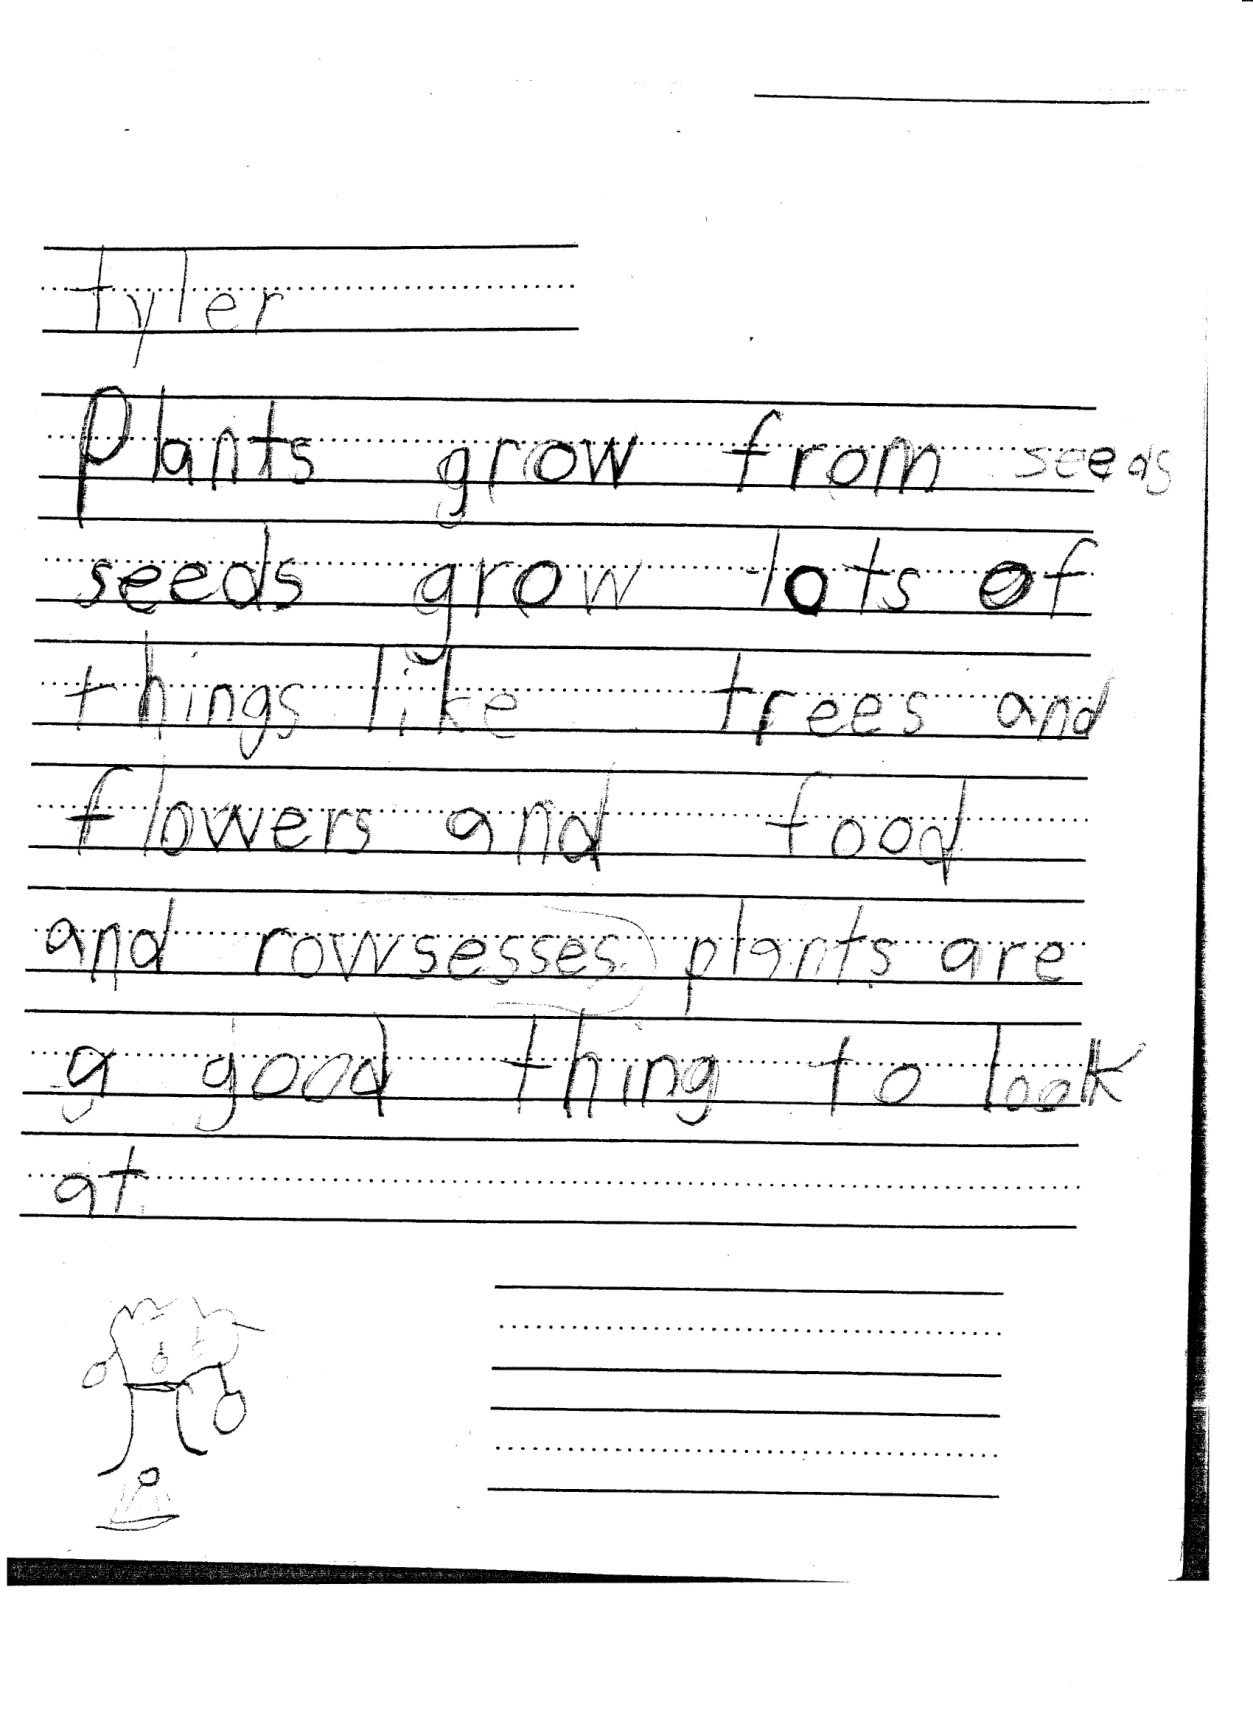 tyler
Plants grow from seeds
seeds grow lots of
things like trees and
flowers and food
and rowsesses plants are
a good thing to look
at.